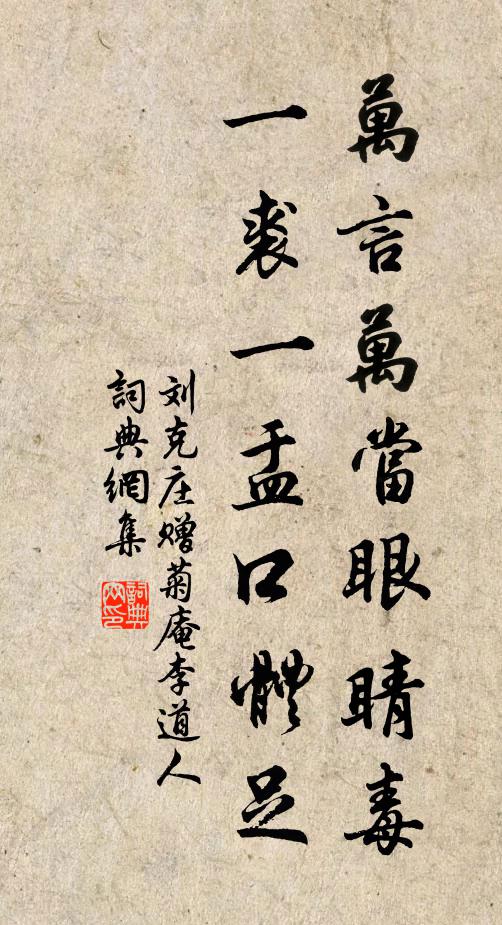 萬言萬當眼睛毒
一裘一盂口體足
刘克庄赠菊庵李道人
詞典網集
詞典
网印